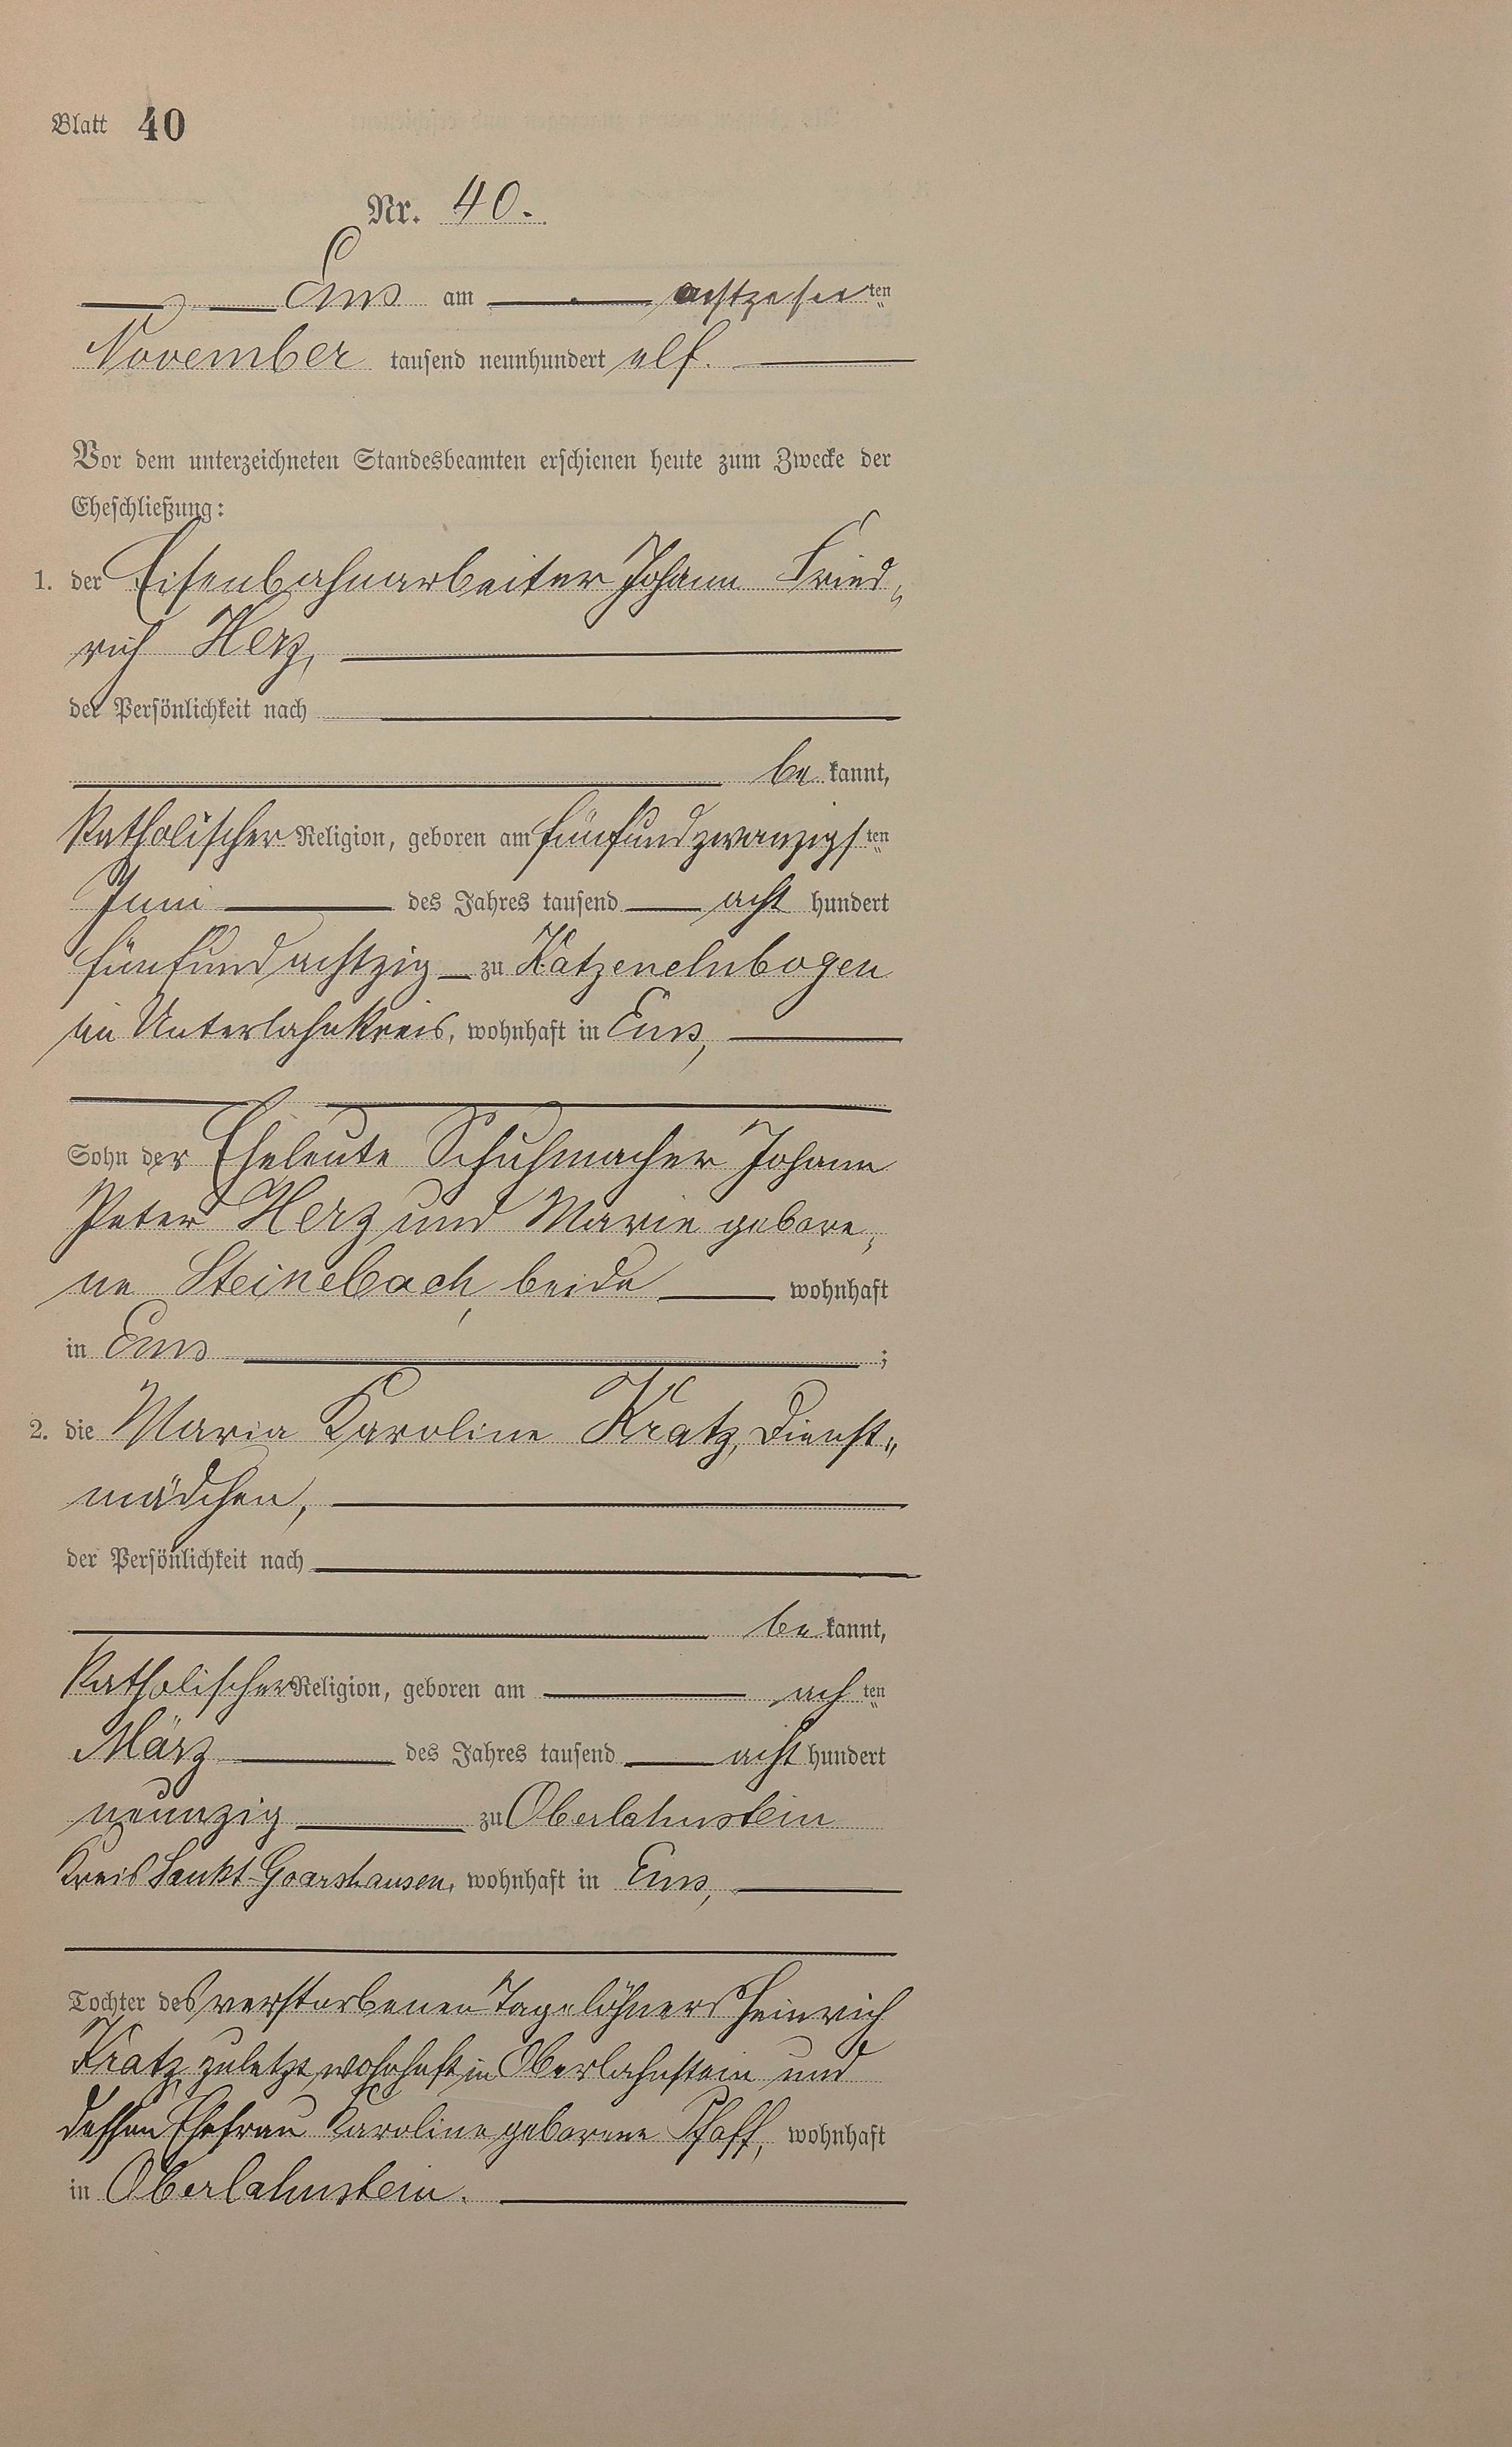 Blatt 40
Nr. 40.
Ems am achtzehnten
November tausend neunhundert elf.
Vor dem unterzeichneten Standesbeamten erschienen heute zum Zwecke der
Eheschließung:
1. der Eisenbahnarbeiter Johann Fried„
rich Herz,
der Persönlichkeit nach
be kannt,
katholischer Religion, geboren am fünfundzwanzigsten
Juni des Jahres tausend acht hundert
fünfundachtzig zu Katzenelnbogen
im Unterlahnkreis, wohnhaft in Ems,
Sohn der Eheleute Schuhmacher Johann
Peter Herz und Marie gebore„
ne Steinebach, beide wohnhaft
in Ems ;
2. die Maria Karoline Kratz, Dienst„
mädchen,
der Persönlichkeit nach
be kannt,
katholischer Religion, geboren am achten
März des Jahres tausend acht hundert
neunzig zu Oberlahnstein
Kreis Sankt Goarshausen, wohnhaft in Ems,
Tochter des verstorbenen Tagelöhners Heinrich
Kratz, zuletzt wohnhaft in Oberlahnstein und
dessen Ehefrau Karoline geborene Pfaff, wohnhaft
in Oberlahnstein.